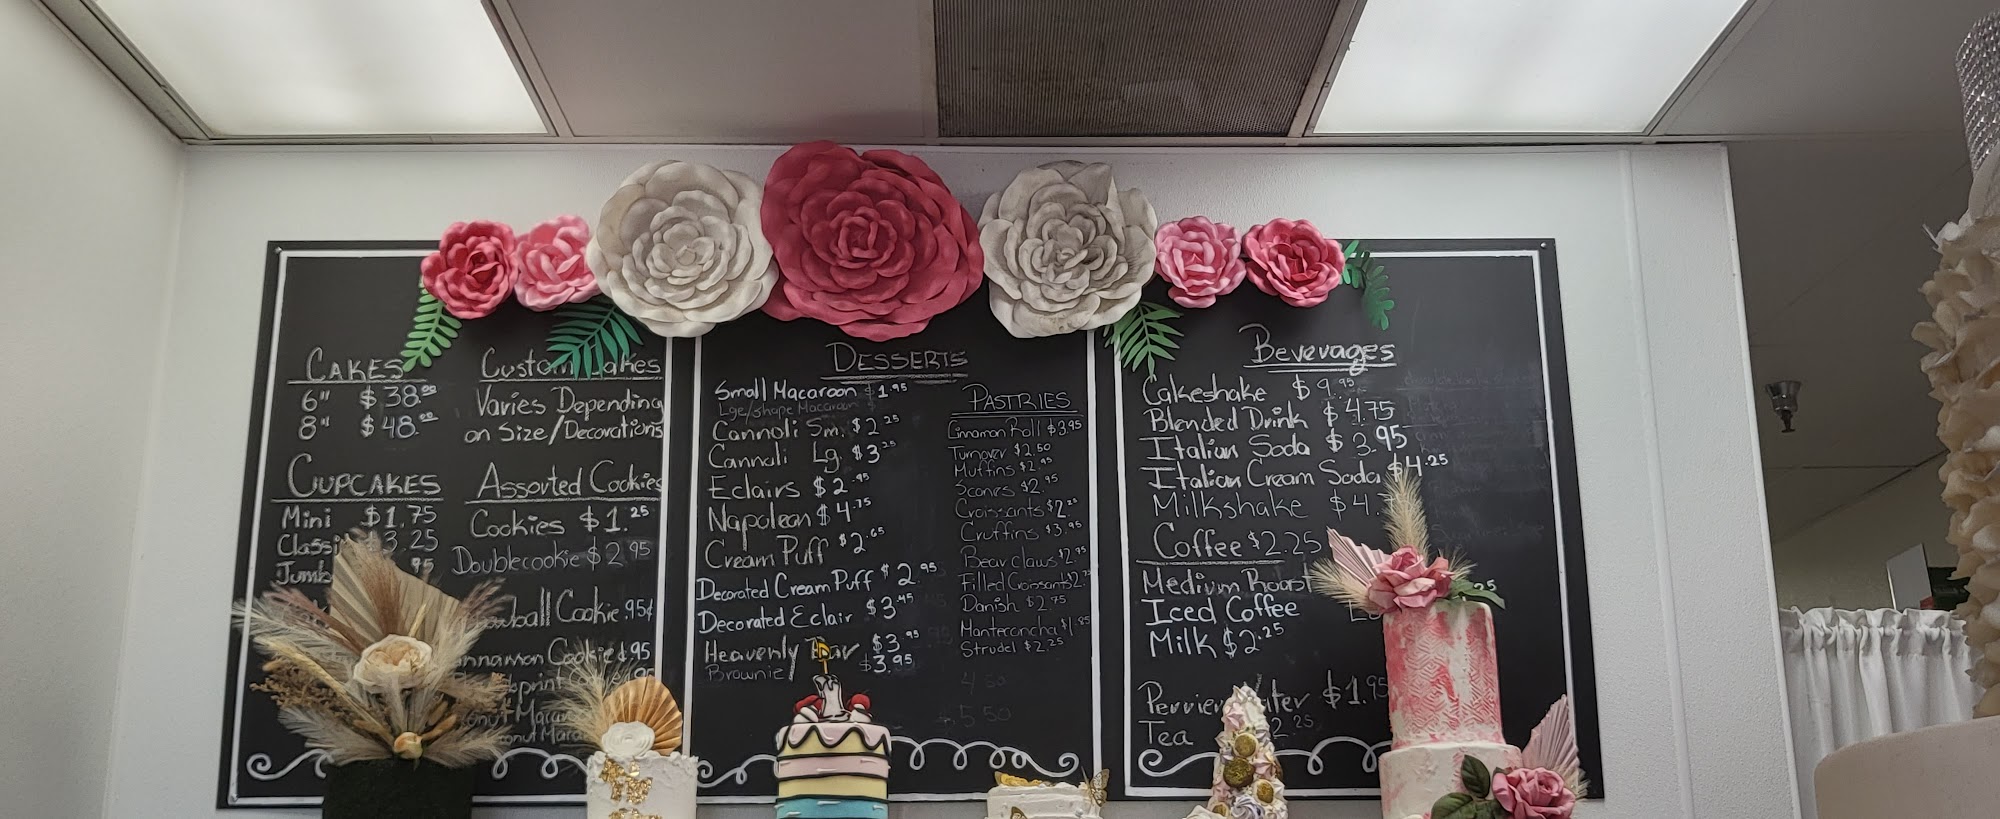 CAKES
6" $38.00
8" $48.00
Custom Cakes
Varies Depending
on Size/Decorations
CUPCAKES
Mini $1.75
Classi 3.25
Jumb 95
Assorted Cookies
Cookies $1.25
Doublecookie $2.95
ball Cookie .95¢
nnamon Cookie .95
print Cookie
onut Macar
onut Macar
DESSERTS
Small Macaroon $1.95
Lge/shape Macaroon $
Cannoli Sm. $2.25
Cannoli Lg. $3.25
Eclairs $2.95
Napoleon $4.75
Cream Puff $2.65
Decorated Cream Puff $2.95
Decorated Eclair $3.45
Heavenly Bar $3.95
Brownie $3.95
PASTRIES
Cinnamon Roll $3.95
Turnover $2.50
Muffins $2.95
Scones $2.95
Croissants $2.25
Cruffins $3.95
Bear claws $2.95
Filled Croissants
Danish $2.75
Manteconcha $1.85
Strudel $2.25
4.50
$5.50
Beverages
Cakeshake $9.95
Blended Drink $4.75
Italian Soda $3.95
Italian Cream Soda $4.25
Milkshake $4.
Coffee $2.25
Medium Roast
Iced Coffee
Milk $2.25
Perrier ater $1.95
Tea 2.25